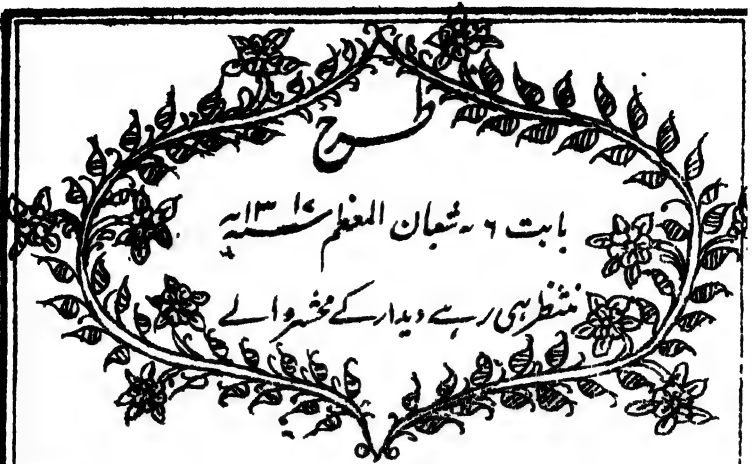 طرح
بابت ۶ شعبان المعظم ۱۳۱۷ھ
منتظر ہی رہے دیدار کے محشر والے